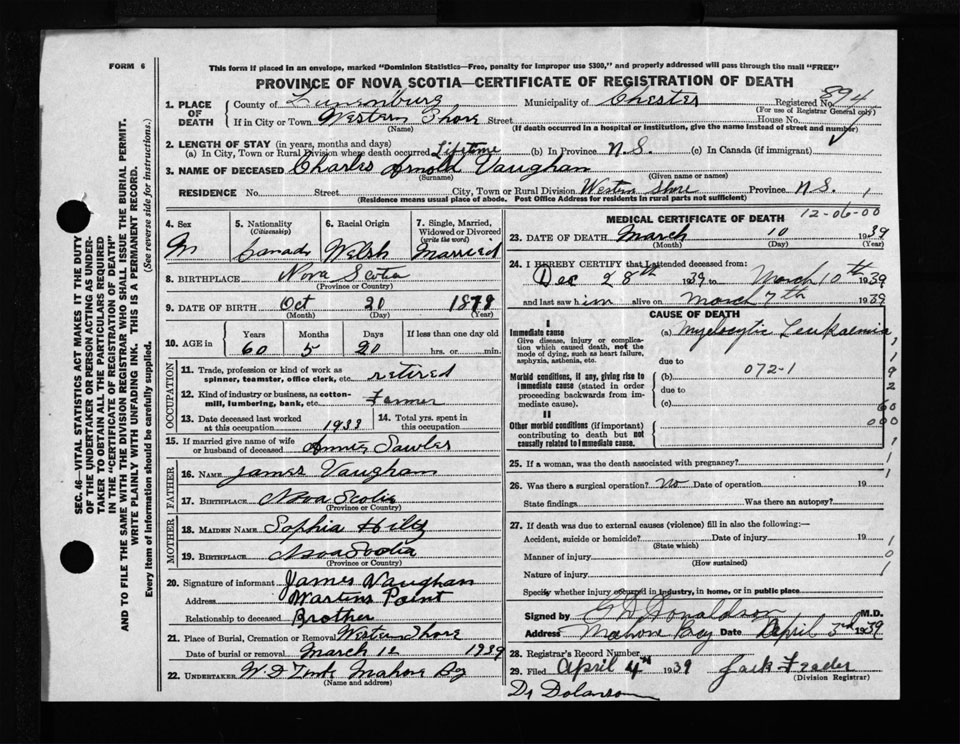 FORM 6
This form if placed in an envelope, marked "Dominion Statistics—Free, penalty for improper use $300," and properly addressed will pass through the mail "FREE"
PROVINCE OF NOVA SCOTIA—CERTIFICATE OF REGISTRATION OF DEATH
SEC. 46—VITAL STATISTICS ACT MAKES IT THE DUTY
OF THE UNDERTAKER OR PERSON ACTING AS UNDER-
TAKER TO OBTAIN ALL THE PARTICULARS REQUIRED
IN THE "CERTIFICATE OF REGISTRATION OF DEATH"
AND TO FILE THE SAME WITH THE DIVISION REGISTRAR WHO SHALL ISSUE THE BURIAL PERMIT.
WRITE PLAINLY WITH UNFADING INK. THIS IS A PERMANENT RECORD.
Every item of information should be carefully supplied. (See reverse side for instructions.)
1. PLACE OF DEATH County of Lunenburg Municipality of Chester Registered No. 894
(For use of Registrar General only)
If in City or Town Western Shore Street House No.
(Name) (If death occurred in a hospital or institution, give the name instead of street and number)
2. LENGTH OF STAY (in years, months and days)
(a) In City, Town or Rural Division where death occurred Lifetime (b) In Province N.S. (c) In Canada (if immigrant)
3. NAME OF DECEASED Charles Arnold Vaughan
(Surname) (Given name or names)
RESIDENCE No. Street City, Town or Rural Division Western Shore Province N.S. 1
(Residence means usual place of abode. Post Office Address for residents in rural parts not sufficient)
4. Sex M
5. Nationality (Citizenship) Canada
6. Racial Origin Welsh
7. Single, Married, Widowed or Divorced (write the word) Married
8. BIRTHPLACE Nova Scotia
(Province or Country)
9. DATE OF BIRTH Oct 20 1878
(Month) (Day) (Year)
10. AGE in Years Months Days If less than one day old
60 5 20 hrs. or min.
OCCUPATION
11. Trade, profession or kind of work as spinner, teamster, office clerk, etc. retired
12. Kind of industry or business, as cotton-mill, lumbering, bank, etc. Farmer
13. Date deceased last worked at this occupation 1933
14. Total yrs. spent in this occupation
15. If married give name of wife or husband of deceased Annie Sawler
FATHER
16. NAME James Vaughan
17. BIRTHPLACE Nova Scotia
(Province or Country)
MOTHER
18. MAIDEN NAME Sophia Hiltz
19. BIRTHPLACE Nova Scotia
(Province or Country)
20. Signature of informant James Vaughan
Address Martins Point
Relationship to deceased Brother
21. Place of Burial, Cremation or Removal Western Shore
Date of burial or removal March 12 1939
22. UNDERTAKER W. D. Zink Mahone Bay
(Name and address)
MEDICAL CERTIFICATE OF DEATH
12-06-00
23. DATE OF DEATH March 10 1939
(Month) (Day) (Year)
24. I HEREBY CERTIFY that I attended deceased from:
Dec 28th 1939 to March 10th 1939
and last saw him alive on March 7th 1939
CAUSE OF DEATH
I
Immediate cause (a) Myelocytic Leukaemia
Give disease, injury or complication which caused death, not the mode of dying, such as heart failure, asphyxia, asthenia, etc.
due to
Morbid conditions, if any, giving rise to immediate cause (stated in order proceeding backwards from immediate cause).
(b) 072-1
due to
(c)
II
Other morbid conditions (if important) contributing to death but not causally related to immediate cause.
25. If a woman, was the death associated with pregnancy?
26. Was there a surgical operation? No Date of operation 19
State findings Was there an autopsy?
27. If death was due to external causes (violence) fill in also the following:—
Accident, suicide or homicide? Date of injury 19
(State which)
Manner of injury
(How sustained)
Nature of injury
Specify whether injury occurred in industry, in home, or in public place
Signed by Donaldson M.D.
Address Mahone Bay Date April 3rd 1939
28. Registrar's Record Number
29. Filed April 4th 1939 Jack
(Division Registrar)